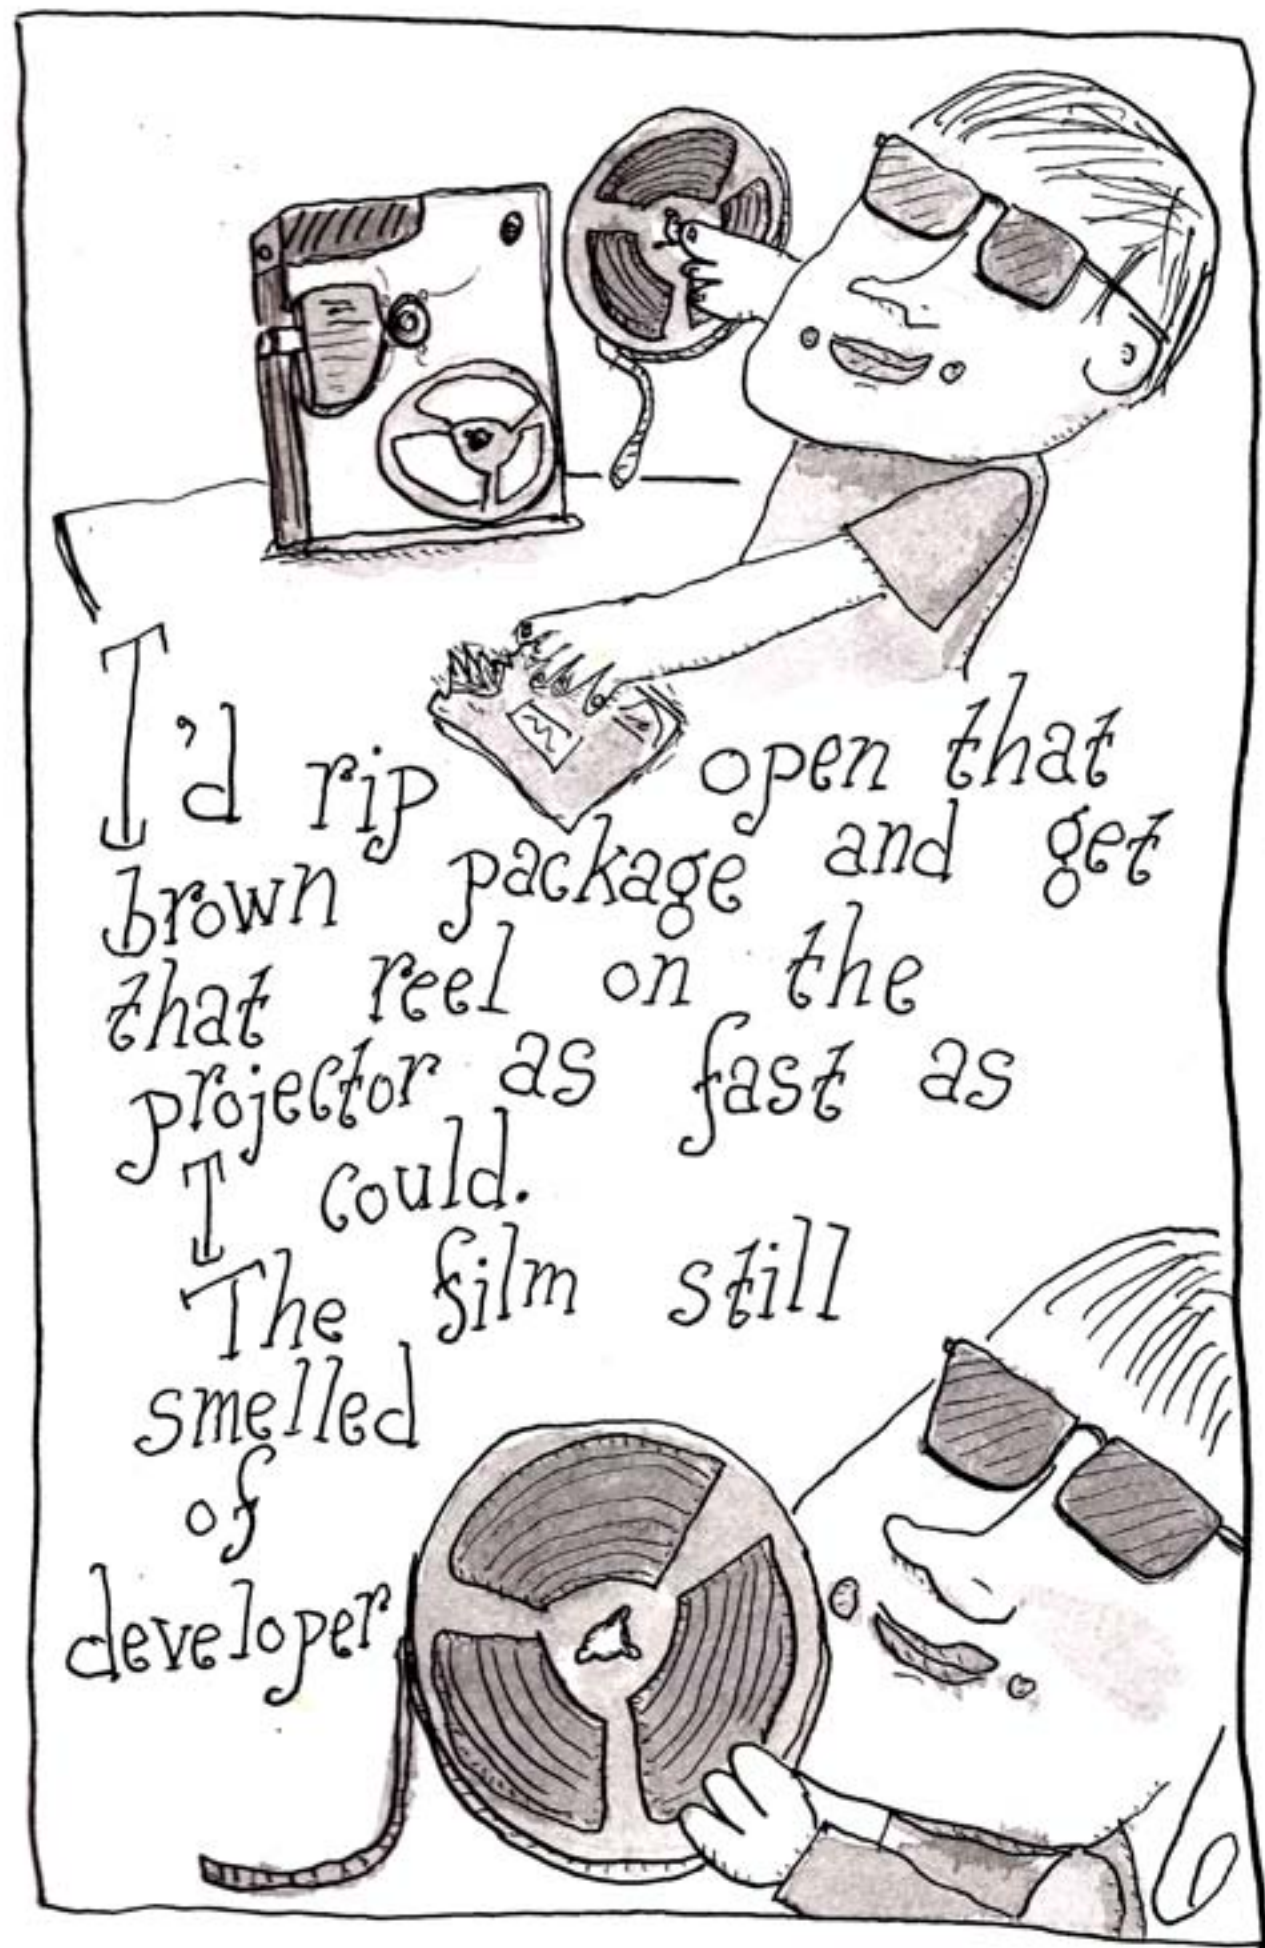 I'd rip open that
brown package and get
that reel on the
projector as fast as
I could.
The film still
smelled
of
developer